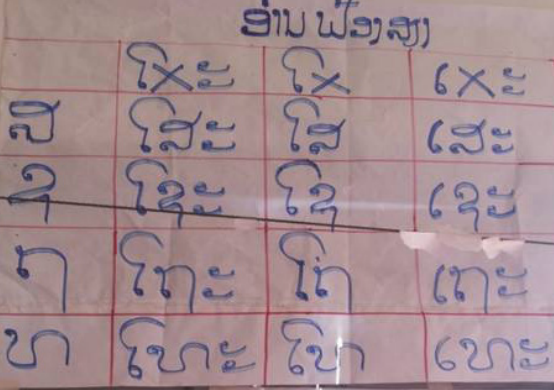 ອ່ານ
ໂxະ ໂx ເxະ
ສ ໂສະ ໂສ ເສະ
ຊ ໂຊະ ໂຊ ເຊະ
ກ ໂກະ ໂກ ເກະ
ຫ ໂຫະ ໂຫ ເຫະ